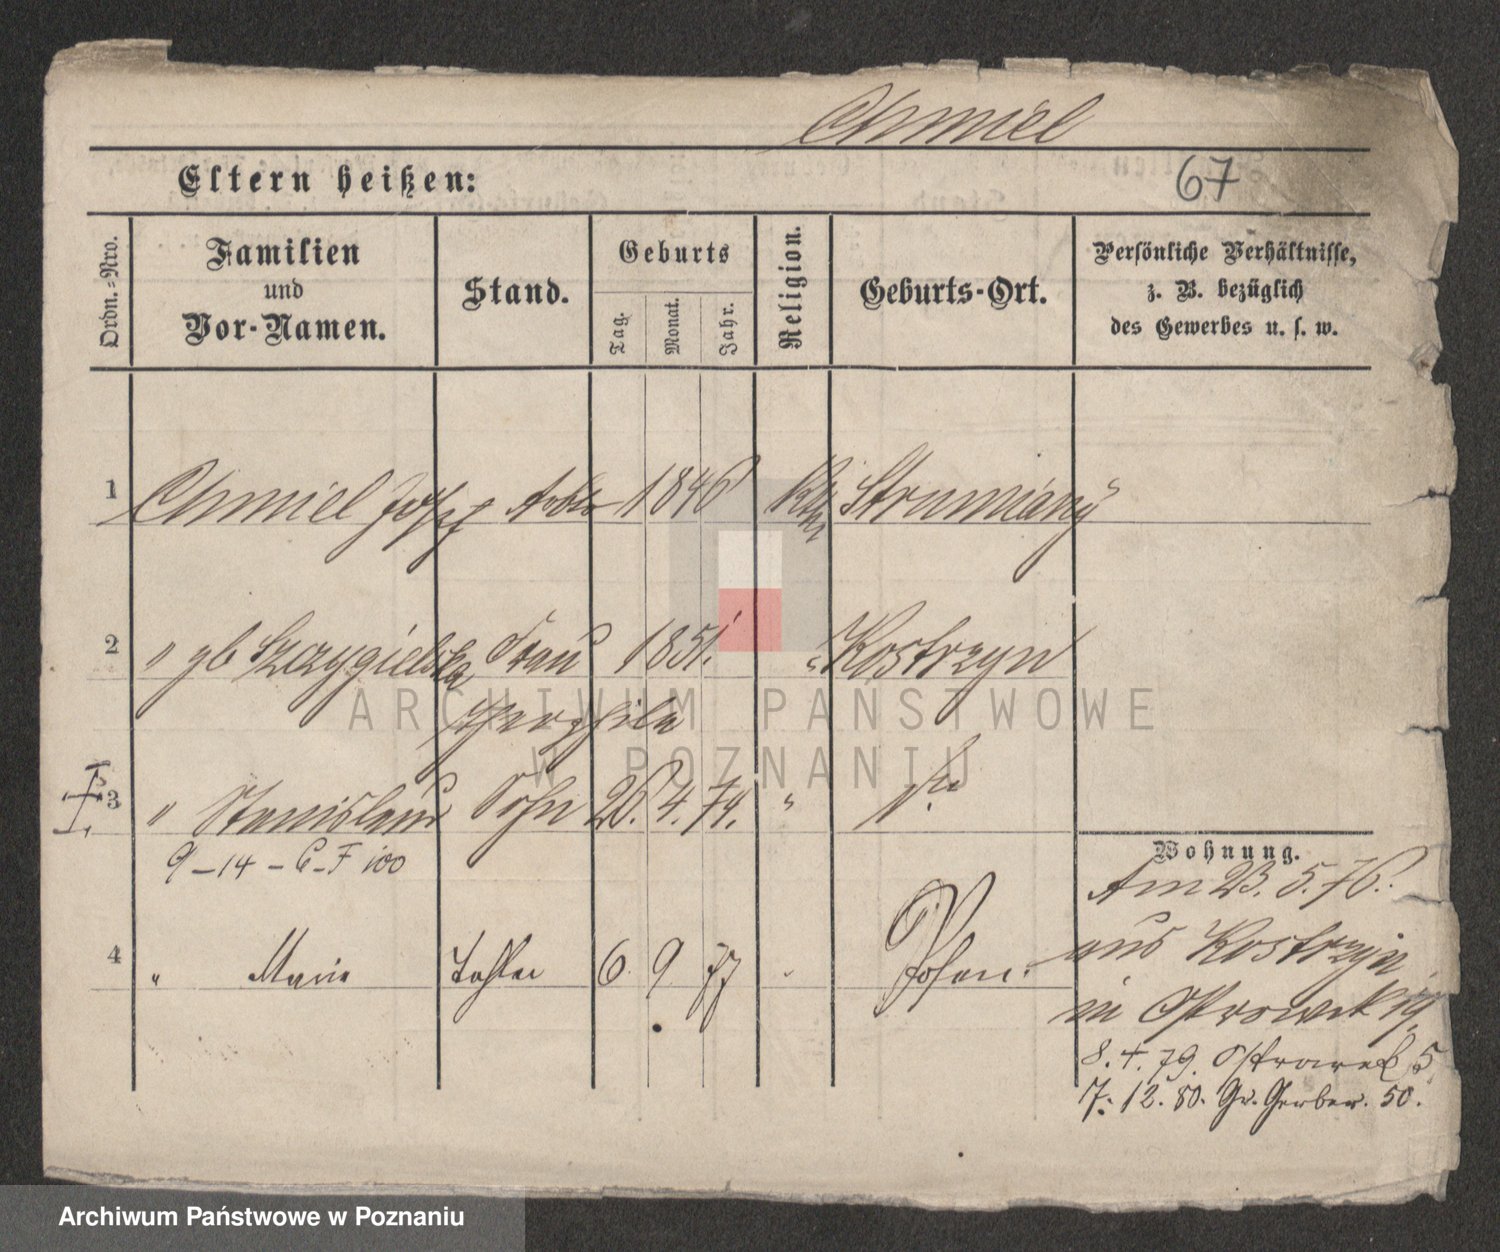 Chmiel
Eltern heißen:
67
Ordn.-Nro.
Familien
und
Vor-Namen.
Stand.
Geburts
Tag.
Monat.
Jahr.
Religion.
Geburts-Ort.
Persönliche Verhältnisse,
z. B. bezüglich
des Gewerbes u. s. w.
1 Chmiel Josef Arbtr 1846 Kth Strumiany
2 " gb Szczygielska Frau 1851. " Kostrzyn
3 " Stanislaus Sohn 26. 4. 74. "
9-14-C-F 100
4 " Marie Tochter 6 9 77 " Posen.
Wohnung.
Am 23. 5. 76.
aus Kostrzyn
in Ostrowek 19.
8. 4. 79. Ostrowek 5
7. 12. 80. Gr. Gerber. 50.
ARCHIWUM PAŃSTWOWE
W POZNANIU
Archiwum Państwowe w Poznaniu